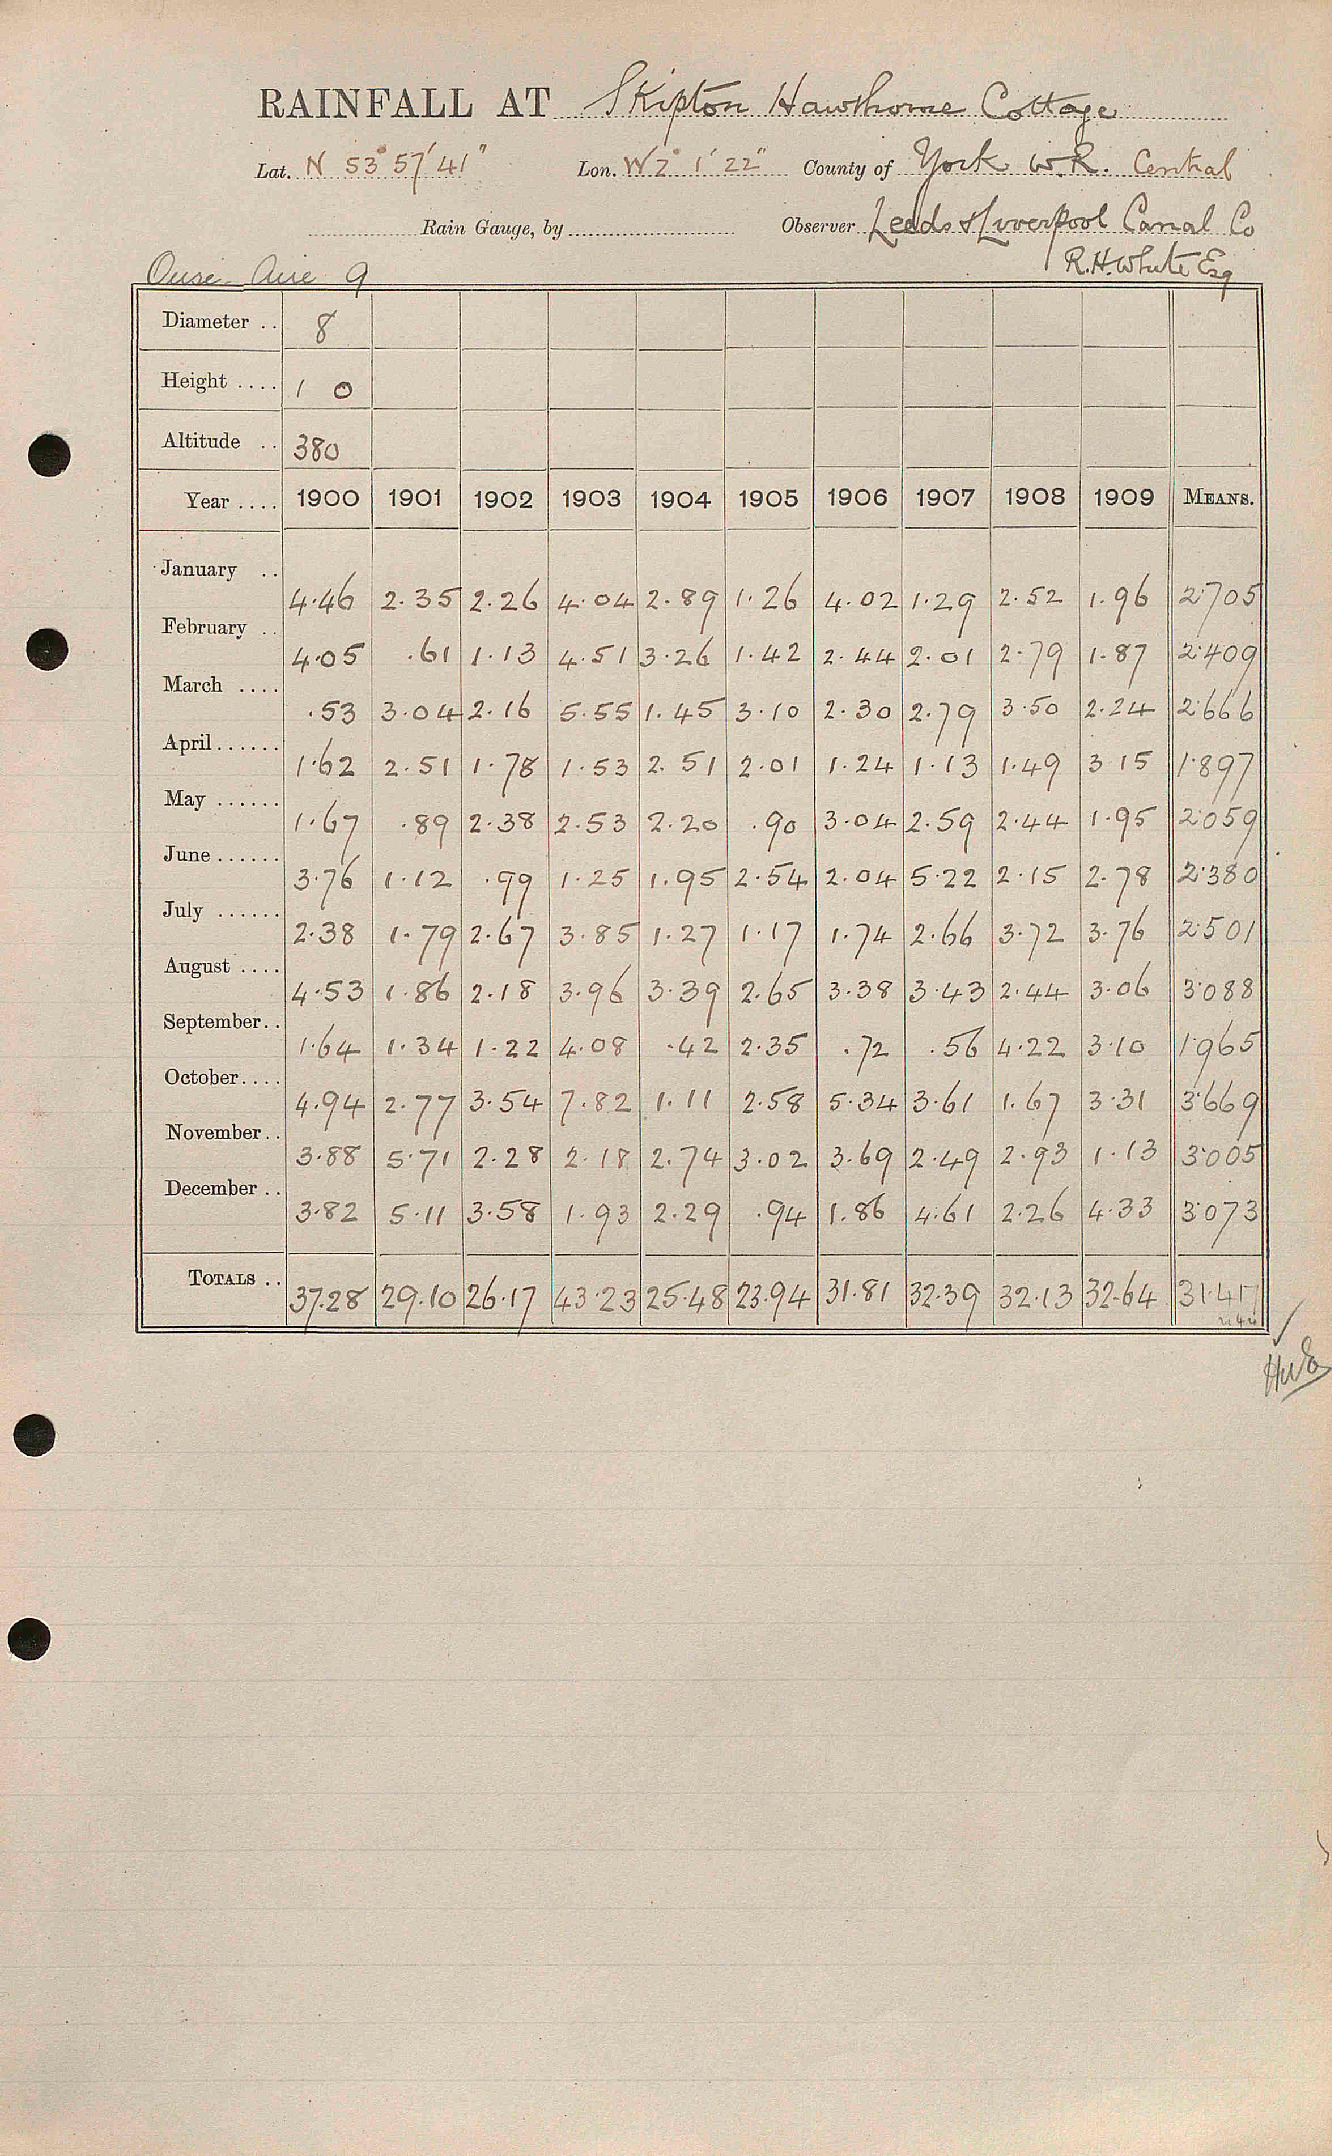 RAINFALL AT Skipton Hawthorne Cottage
Lat. N 53° 57' 41" Lon. W 2° 1' 22" County of York W.R. Central
Rain Gauge, by Observer Leeds & Liverpool Canal Co
R.H. White Esq
Ouse Aire 9
Diameter .. 8
Height .... 1 0
Altitude .. 380
Year .... 1900 1901 1902 1903 1904 1905 1906 1907 1908 1909 MEANS.
January .. 4.46 2.35 2.26 4.04 2.89 1.26 4.02 1.29 2.52 1.96 2.705
February .. 4.05 .61 1.13 4.51 3.26 1.42 2.44 2.01 2.79 1.87 2.409
March .... .53 3.04 2.16 5.55 1.45 3.10 2.30 2.79 3.50 2.24 2.666
April ...... 1.62 2.51 1.78 1.53 2.51 2.01 1.24 1.13 1.49 3.15 1.897
May ...... 1.67 .89 2.38 2.53 2.20 .90 3.04 2.59 2.44 1.95 2.059
June ...... 3.76 1.12 .99 1.25 1.95 2.54 2.04 5.22 2.15 2.78 2.380
July ...... 2.38 1.79 2.67 3.85 1.27 1.17 1.74 2.66 3.72 3.76 2.501
August .... 4.53 1.86 2.18 3.96 3.39 2.65 3.38 3.43 2.44 3.06 3.088
September .. 1.64 1.34 1.22 4.08 .42 2.35 .72 .56 4.22 3.10 1.965
October .... 4.94 2.77 3.54 7.82 1.11 2.58 5.34 3.61 1.67 3.31 3.669
November .. 3.88 5.71 2.28 2.18 2.74 3.02 3.69 2.49 2.93 1.13 3.005
December .. 3.82 5.11 3.58 1.93 2.29 .94 1.86 4.61 2.26 4.33 3.073
TOTALS .. 37.28 29.10 26.17 43.23 25.48 23.94 31.81 32.39 32.13 32.64 31.417